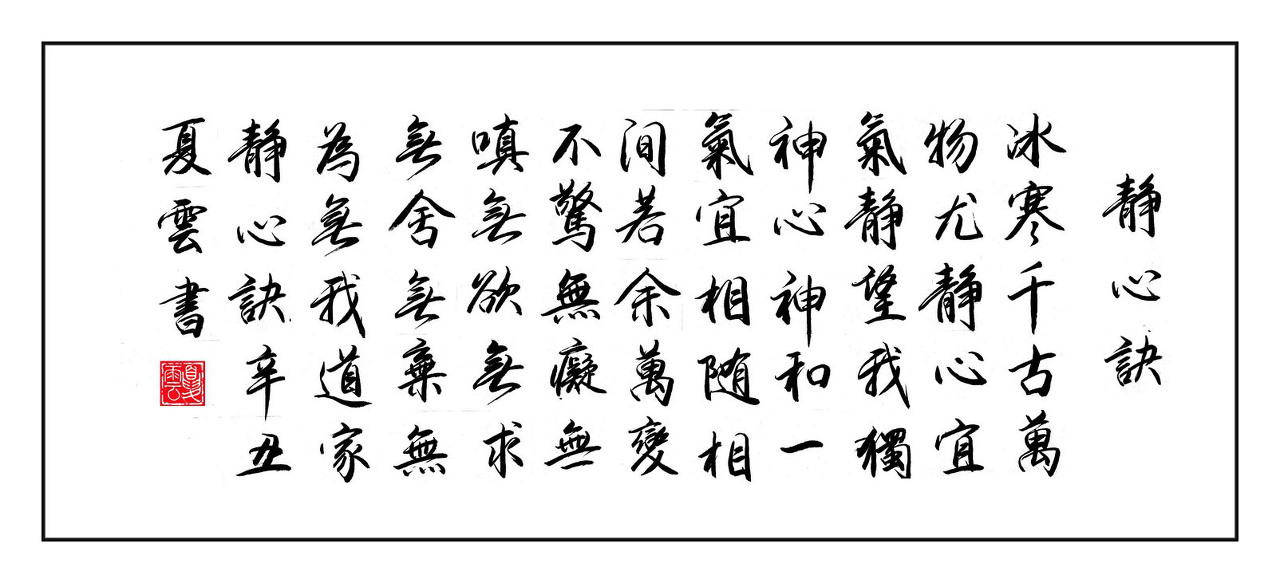 靜心訣
冰寒千古萬
物尤靜心宜
氣靜望我獨
神心神和一
氣宜相随相
間若余萬變
不驚無癡無
嗔無欲無求
無舍無棄無
為無我道家
靜心訣辛丑
夏雲書
夏雲